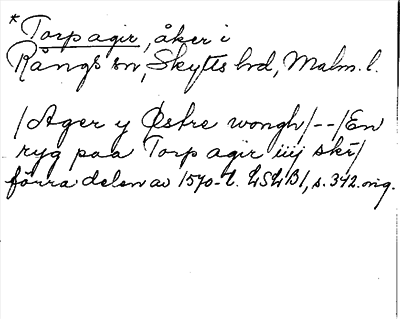 * Torp agir, åker i
Rångs sn, Skytts hd, Malm. l.
/Ager y Østre wongh/--/En
ryg paa Torp agir iiij skr/
förra delen av 1570-t. LSLB1, s. 342. orig.